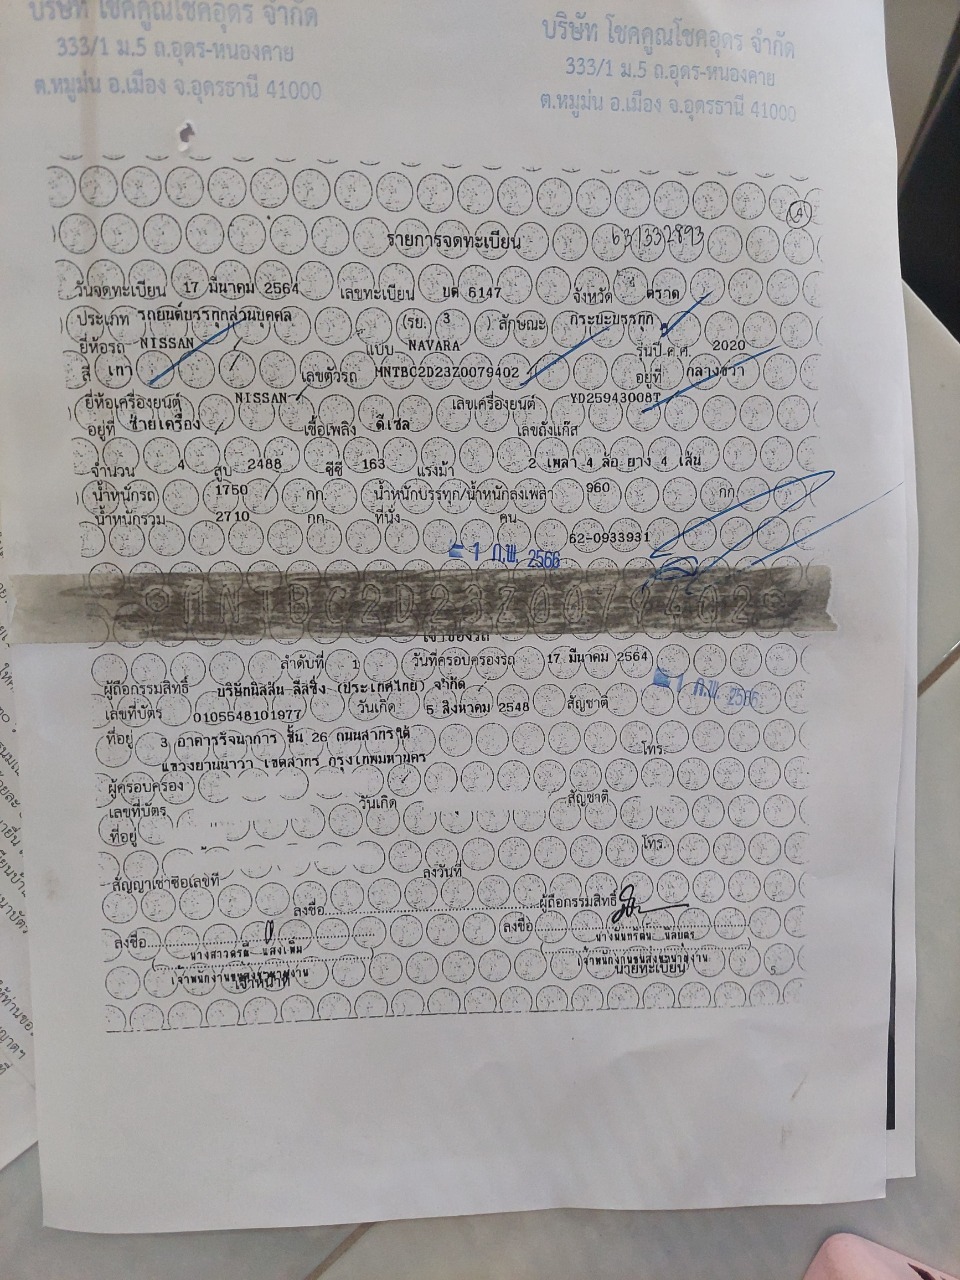 บริษัท โชคคูณโชคอุดร จำกัด
333/1 ม.5 ถ.อุดร-หนองคาย
ต.หมูม่น อ.เมือง จ.อุดรธานี 41000
บริษัท โชคคูณโชคอุดร จำกัด
333/1 ม.5 ถ.อุดร-หนองคาย
ต.หมูม่น อ.เมือง จ.อุดรธานี 41000
A
รายการจดทะเบียน 631332893
วันจดทะเบียน 17 มีนาคม 2564 เลขทะเบียน บต 6147 จังหวัด ตราด
ประเภท รถยนต์บรรทุกส่วนบุคคล (รย. 3 ) ลักษณะ กระบะบรรทุก
ยี่ห้อรถ NISSAN แบบ NAVARA รุ่นปี ค.ศ. 2020
สี เทา เลขตัวรถ MNTBC2D23Z0079402 อยู่ที่ กลางขวา
ยี่ห้อเครื่องยนต์ NISSAN เลขเครื่องยนต์ YD25943008T
อยู่ที่ ซ้ายเครื่อง เชื้อเพลิง ดีเซล เลขถังแก๊ส
จำนวน 4 สูบ 2488 ซีซี 163 แรงม้า 2 เพลา 4 ล้อ ยาง 4 เส้น
น้ำหนักรถ 1750 กก. น้ำหนักบรรทุก/น้ำหนักลงเพลา 960 กก.
น้ำหนักรวม 2710 กก. ที่นั่ง คน
62-0933931
- 1 ก.พ. 2566
MNTBC2D23Z0079402
เจ้าของรถ
ลำดับที่ 1 วันที่ครอบครองรถ 17 มีนาคม 2564
- 1 ก.พ. 2566
ผู้ถือกรรมสิทธิ์ บริษัทนิสสัน ลีสซิ่ง (ประเทศไทย) จำกัด
เลขที่บัตร 0105548101977 วันเกิด 5 สิงหาคม 2548 สัญชาติ
ที่อยู่ 3 อาคารรัจนาการ ชั้น 26 ถนนสาทรใต้
แขวงยานนาวา เขตสาทร กรุงเทพมหานคร โทร.
ผู้ครอบครอง
เลขที่บัตร วันเกิด สัญชาติ
ที่อยู่
โทร.
สัญญาเช่าซื้อเลขที่ ลงวันที่
ลงชื่อ ผู้ถือกรรมสิทธิ์
ลงชื่อ ลงชื่อ
เจ้าพนักงานขนส่งชำนาญงาน เจ้าพนักงานขนส่งชำนาญงาน
เจ้าหน้าที่ นายทะเบียน